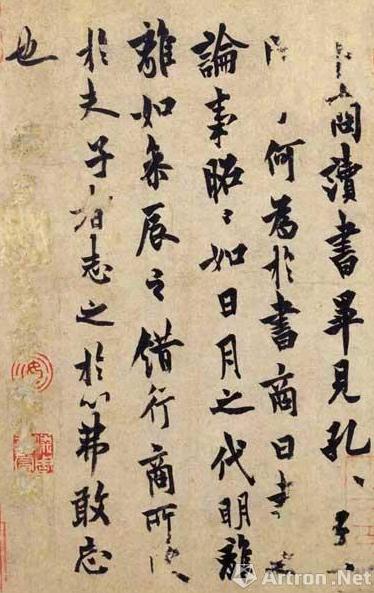 商讀書畢見孔〻子〻
何為於書商曰書
論事昭〻如日月之代明離
離如參辰之錯行商所
於夫子者志之於心弗敢忘
也
Artron.Net